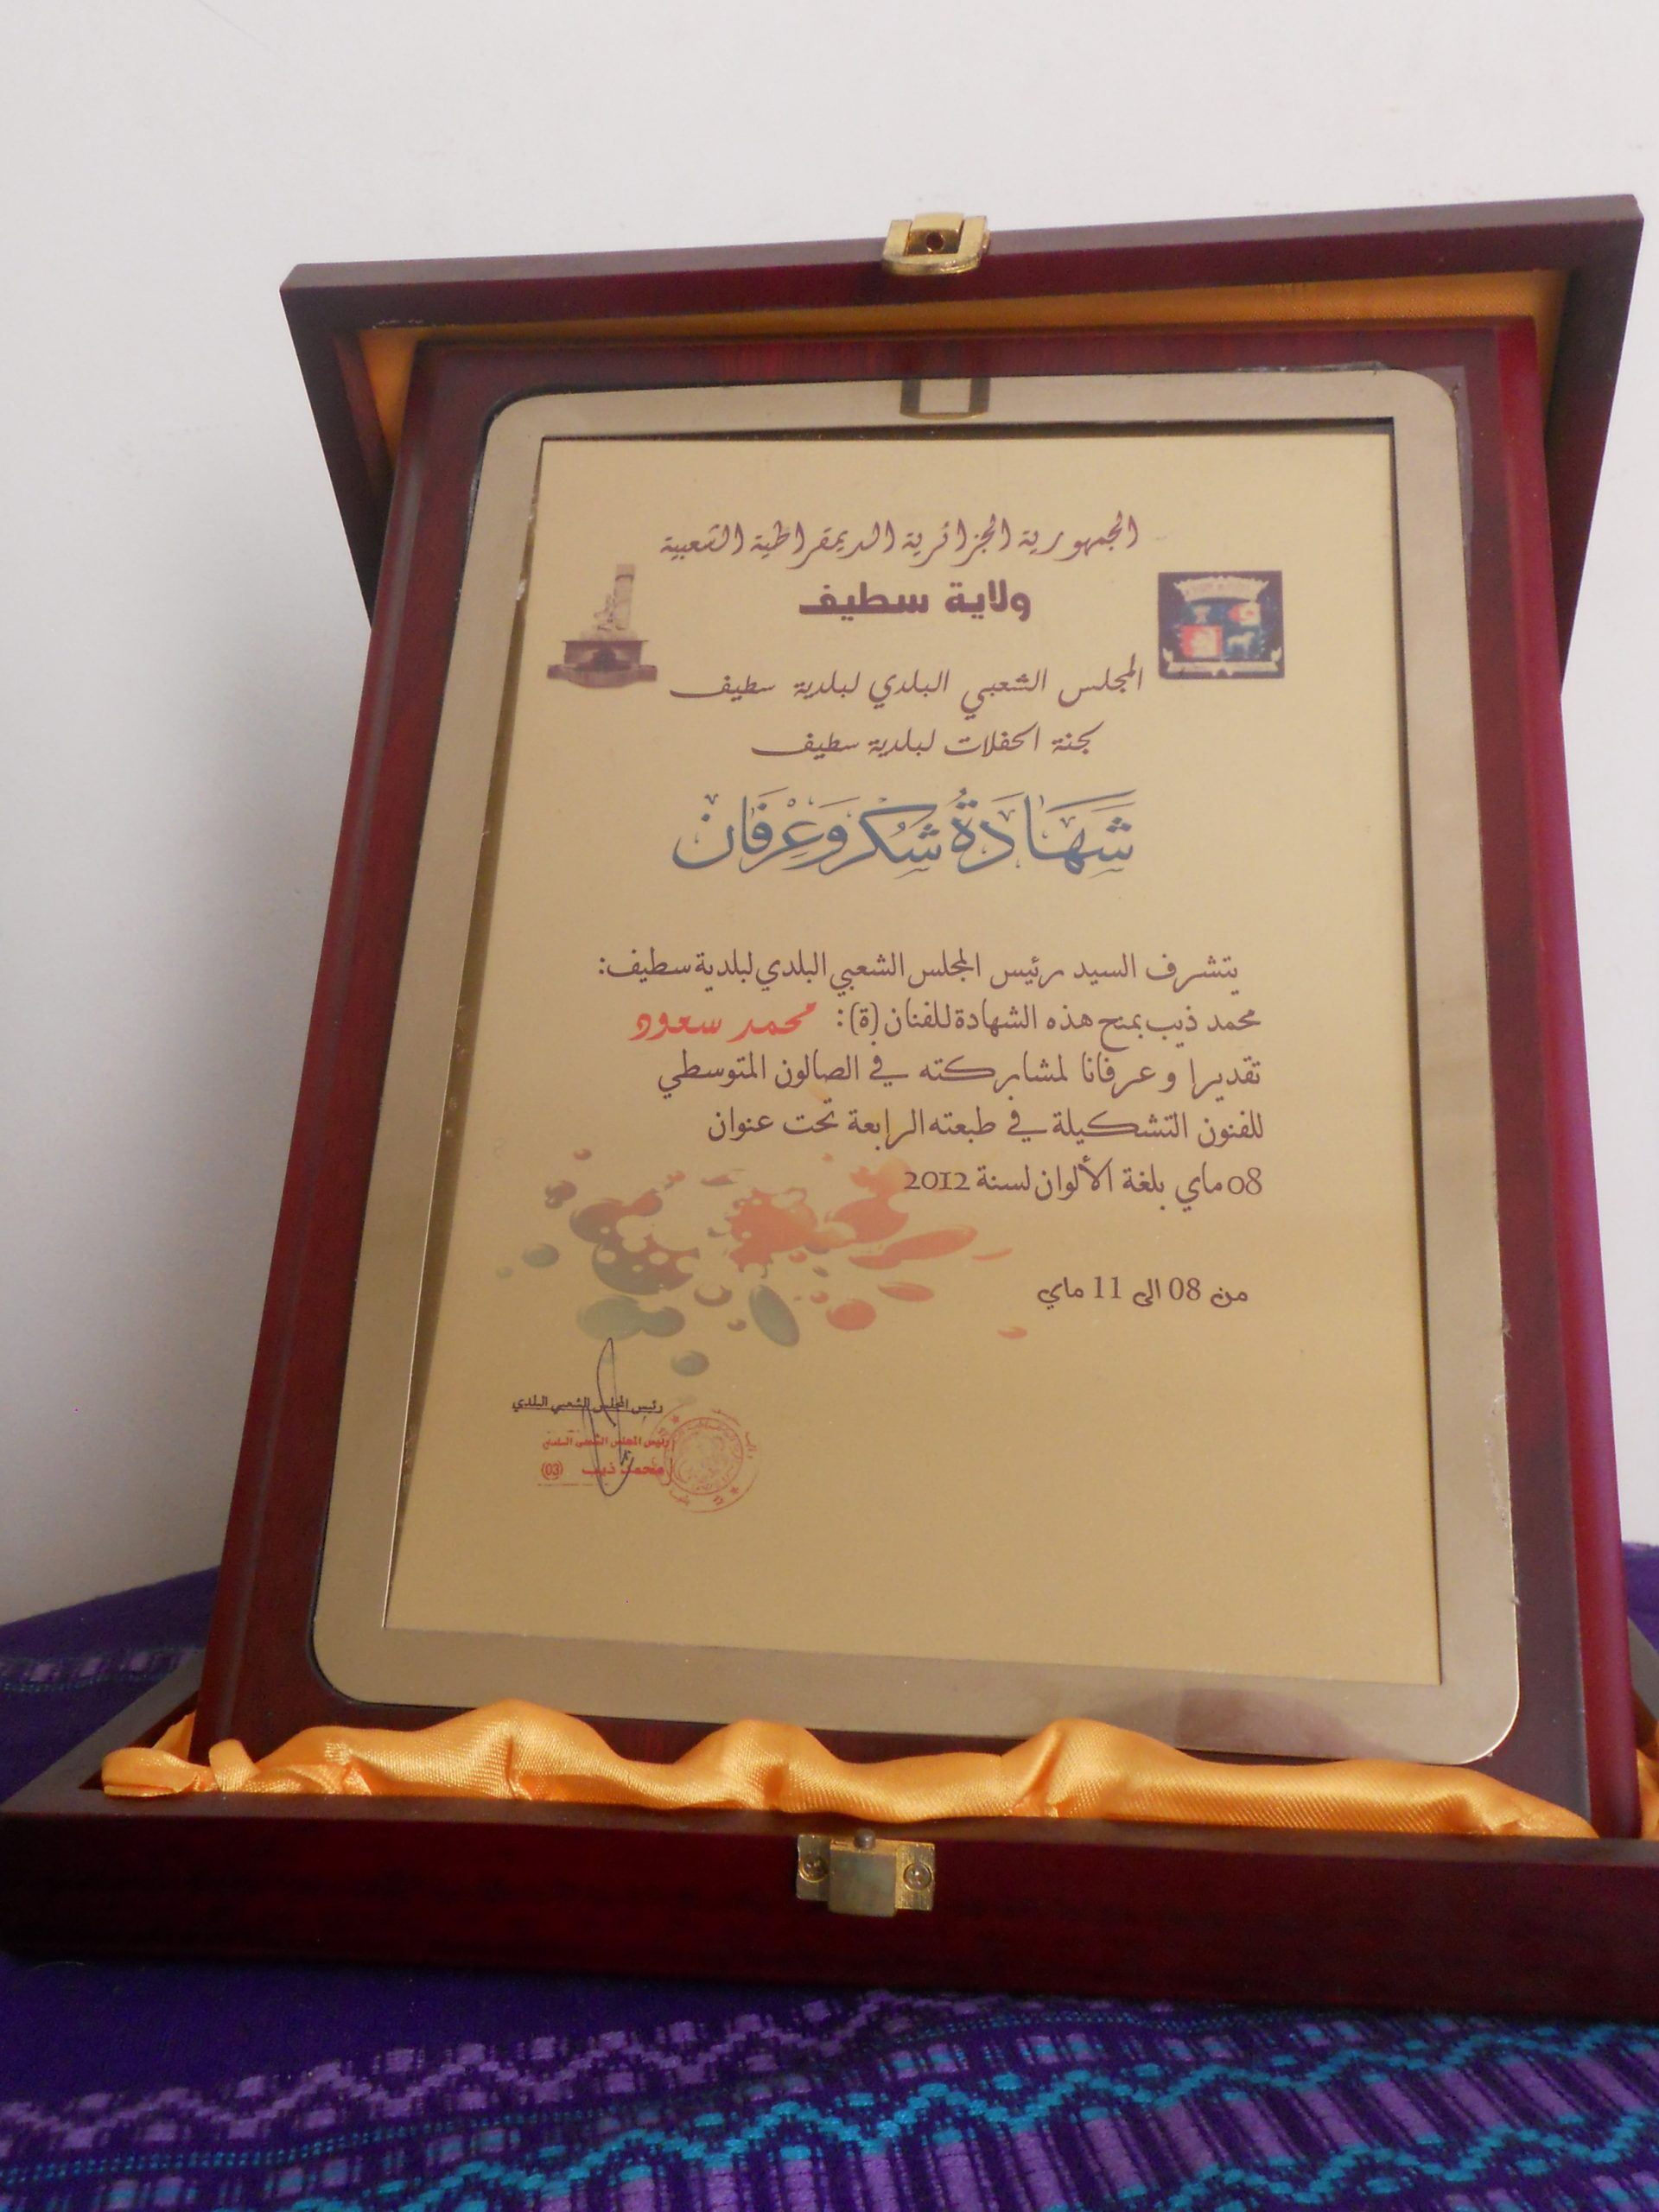 الجمهورية الجزائرية الديمقراطية الشعبية
ولاية سطيف
المجلس الشعبي البلدي لبلدية سطيف
لجنة الحفلات لبلدية سطيف
شَهَادَةُ شُكْر وَعِرْفَان
يتشرف السيد رئيس المجلس الشعبي البلدي لبلدية سطيف:
محمد ذيب بمنح هذه الشهادة للفنان (ة): محمد سعود
تقديرا و عرفانا لمشاركته في الصالون المتوسطي
للفنون التشكيلة في طبعته الرابعة تحت عنوان
08 ماي بلغة الألوان لسنة 2012
من 08 الى 11 ماي
رئيس المجلس الشعبي البلدي
رئيس المجلس الشعبي البلدي
محمد ذيب (03)